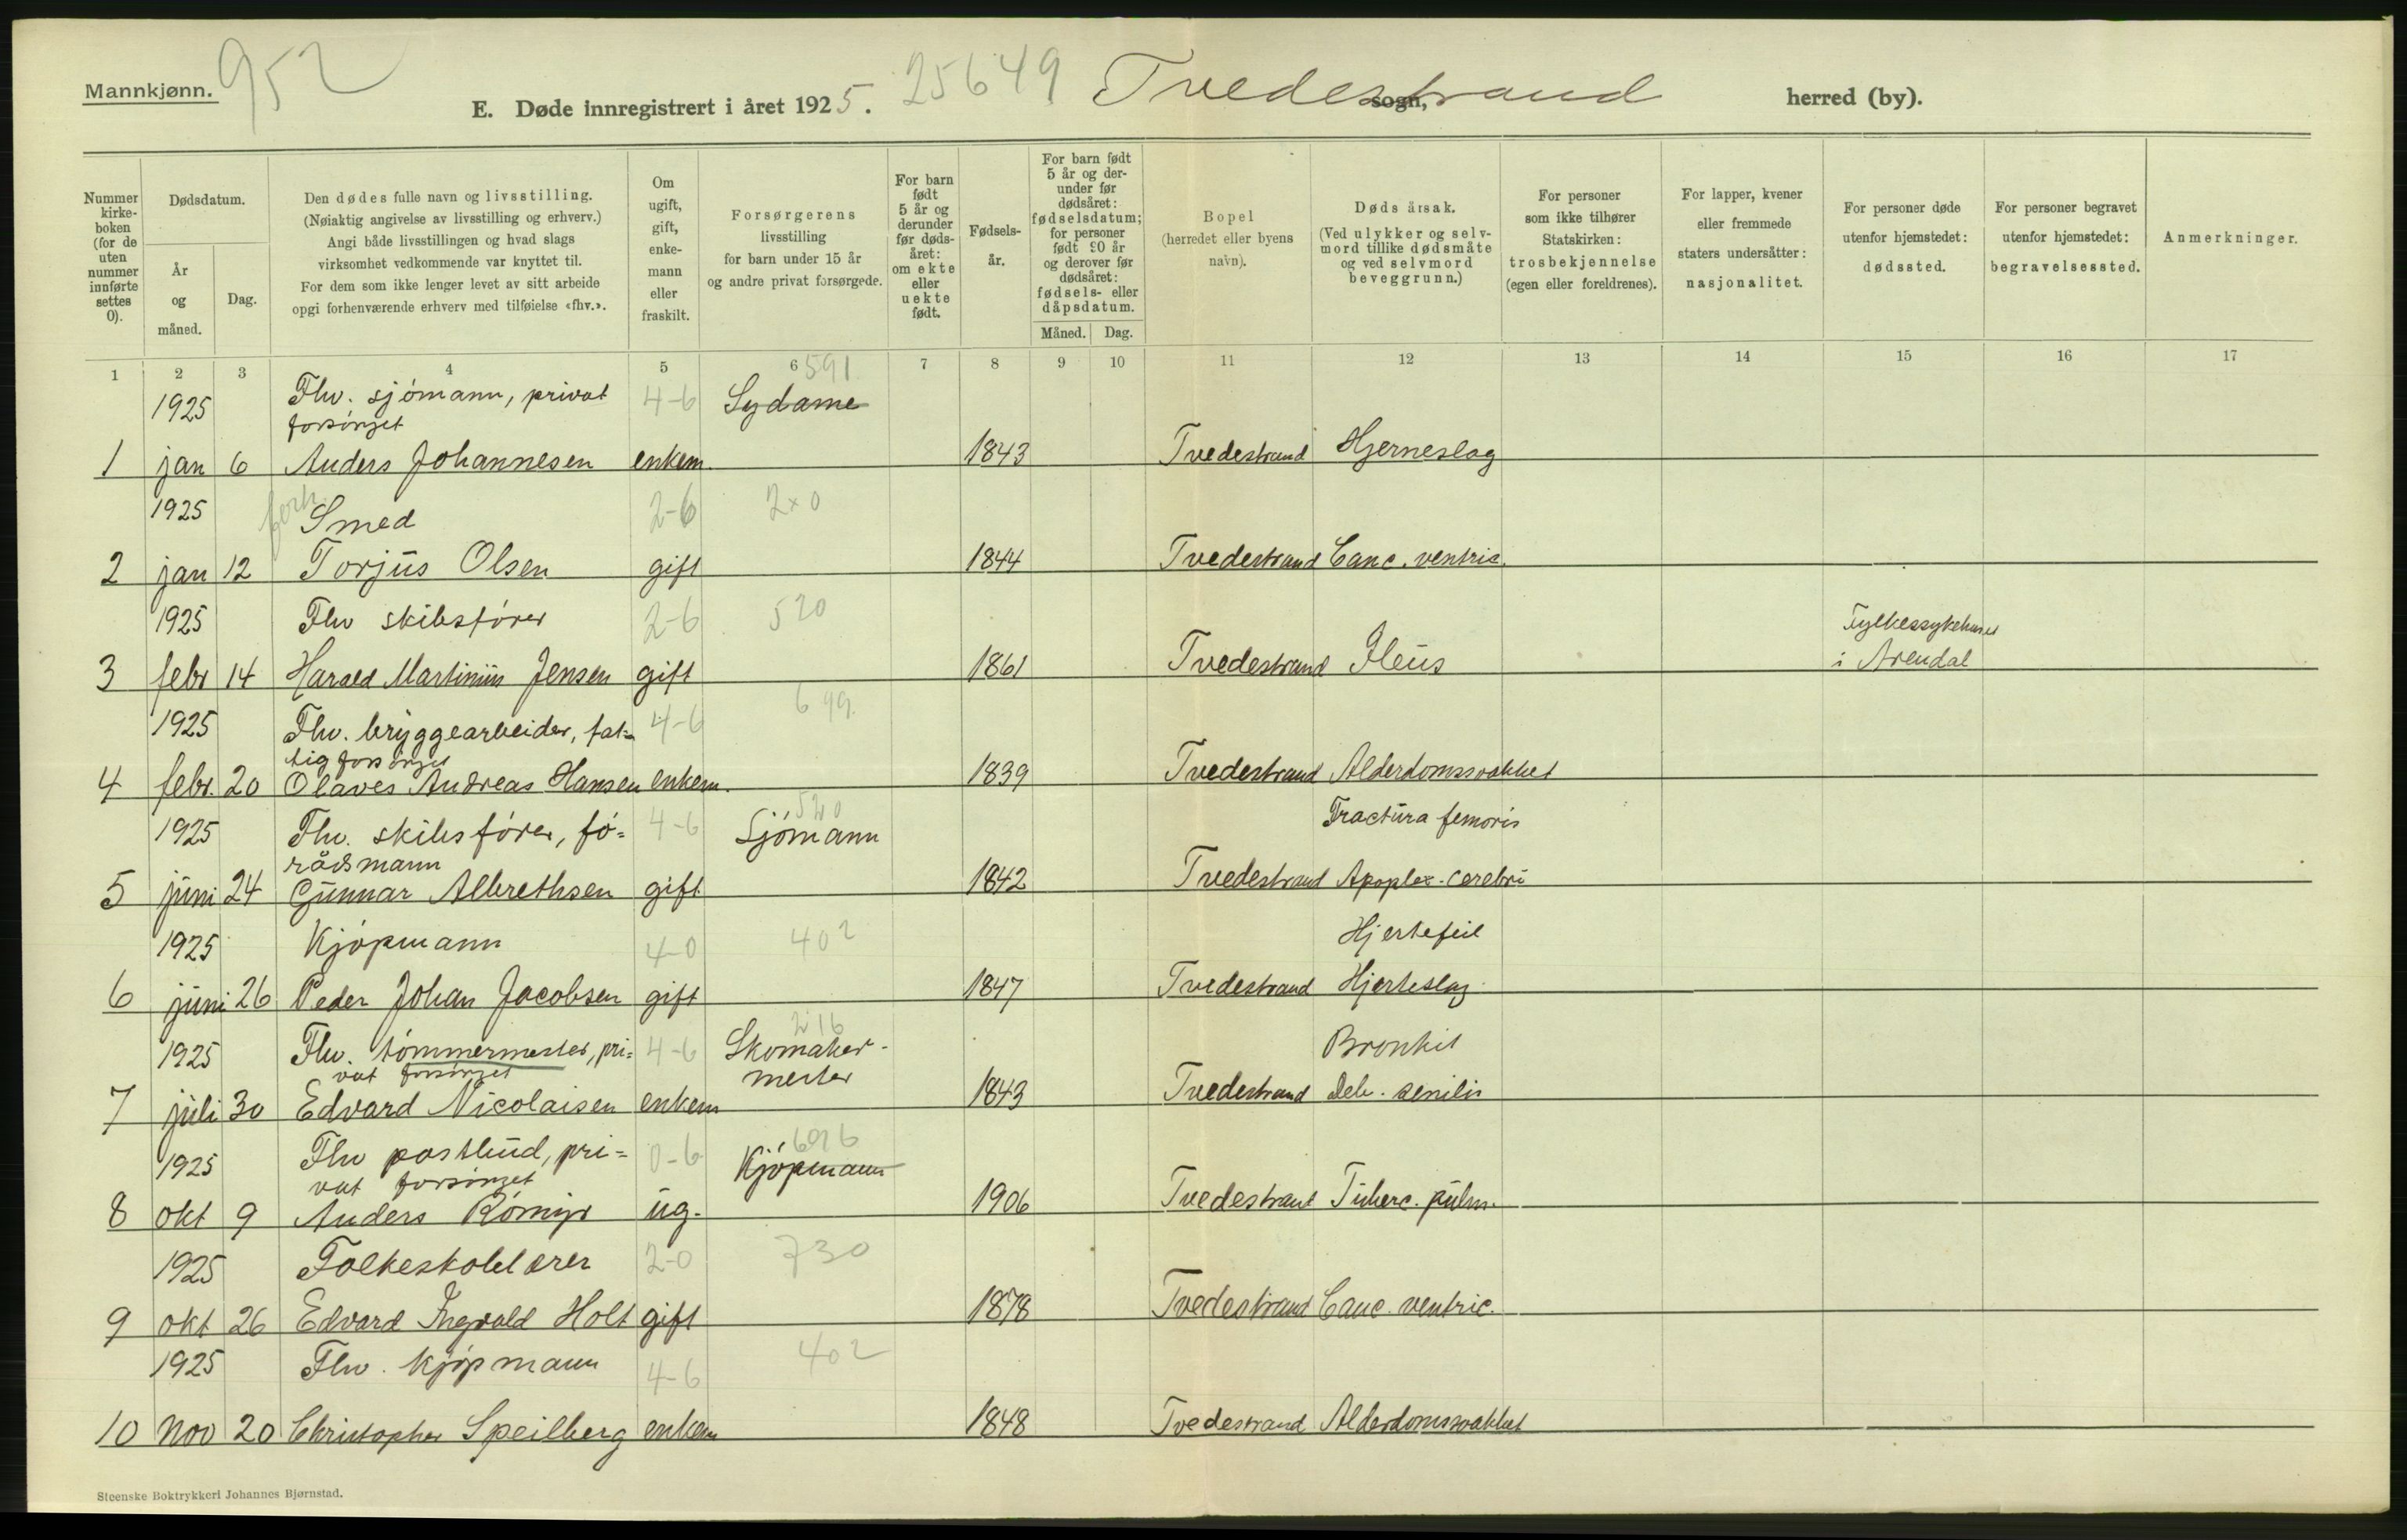 Mannkjønn.
952
E. Døde innregistrert i året 1925.
25649
Tvedestrand
sogn,
herred (by).
Nummer
kirke-
boken
(for de
uten
nummer
innførte
settes
0).
Dødsdatum.
År
og
måned.
Dag.
Den dødes fulle navn og livsstilling.
(Nøiaktig angivelse av livsstilling og erhverv.)
Angi både livsstillingen og hvad slags
virksomhet vedkommende var knyttet til.
For dem som ikke lenger levet av sitt arbeide
opgi forhenværende erhverv med tilføielse «fhv.».
Om
ugift,
gift,
enke-
mann
eller
fraskilt.
Forsørgerens
livsstilling
for barn under 15 år
og andre privat forsørgede.
For barn
født
5 år og
derunder
før døds-
året:
om ekte
eller
uekte
født.
Fødsels-
år.
For barn født
5 år og der-
under før
dødsåret:
fødselsdatum;
for personer
født 90 år
og derover før
dødsåret:
fødsels- eller
dåpsdatum.
Måned. Dag.
Bopel
(herredet eller byens
navn).
Døds årsak.
(Ved ulykker og selv-
mord tillike dødsmåte
og ved selvmord
beveggrunn.)
For personer
som ikke tilhører
Statskirken:
trosbekjennelse
(egen eller foreldrenes).
For lapper, kvener
eller fremmede
staters undersåtter:
nasjonalitet.
For personer døde
utenfor hjemstedet:
dødssted.
For personer begravet
utenfor hjemstedet:
begravelsessted.
Anmerkninger.
1 2 3 4 5 6 7 8 9 10 11 12 13 14 15 16 17
591
1925 Fhv. sjømann, privat 4-6 Sydame
forsørget
1 jan 6 Anders Johannesen enkem. 1843 Tvedestrand Hjerneslag
1925 forh. Smed 2-6 2x0
2 jan 12 Torjus Olsen gift 1844 Tvedestrand Canc. ventric.
1925 Fhv skibsfører 2-6 520 Fylkessykehuset
3 febr 14 Harald Martinius Jensen gift 1861 Tvedestrand Ileus i Arendal
1925 Fhv. bryggearbeider, fat= 4-6 699
tig forsørget
4 febr. 20 Olaves Andreas Hansen enkem. 1839 Tvedestrand Alderdomssvakket
1925 Fhv. skibsfører, fø= 4-6 520 Sjømann Fractura femoris
rådsmann
5 juni 24 Gunnar Albrethsen gift 1842 Tvedestrand Apoplex. cerebri
1925 Kjøpmann 4-0 402 Hjertefeil
6 juni 26 Peder Johan Jacobsen gift 1847 Tvedestrand Hjerteslag
216
1925 Fhv. tømmermester, pri= 4-6 Skomaker- Bronkit
vat forsørget mester
7 juli 30 Edvard Nicolaisen enkem 1843 Tvedestrand Deb. senilis
1925 Fhv postbud, pri= 0-6 696 Kjøpmann
vat forsørget
8 okt 9 Anders Rømyr ug. 1906 Tvedestrand Tuberc. pulm.
1925 Folkeskolelærer 2-0 730
9 okt 26 Edvard Ingvald Holt gift 1878 Tvedestrand Canc. ventric.
1925 Fhv. kjøpmann 4-6 402
10 nov 20 Christopher Speilberg enkem 1848 Tvedestrand Alderdomssvakket
Steenske Boktrykkeri Johannes Bjørnstad.